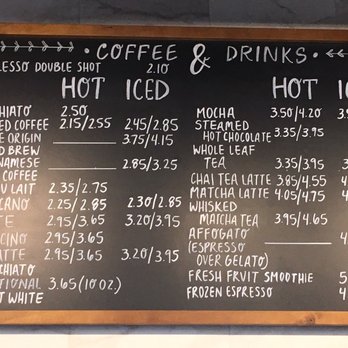 COFFEE & DRINKS
ESSO DOUBLE SHOT 2.10
HOT ICED
HIATO 2.50
ED COFFEE 2.15/2.55 2.45/2.85
E ORIGIN 3.75/4.15
D BREW
NAMESE 2.85/3.25
COFFEE
U LAIT 2.35/2.75
CANO 2.25/2.85 2.30/2.85
TE 2.95/3.65 3.20/3.95
CINO 2.95/3.65
ATTE 2.95/3.65 3.20/3.95
CHIATO
TIONAL 3.65 (10 OZ.)
T WHITE
HOT IC
MOCHA 3.50/4.20 3.9
STEAMED
HOT CHOCOLATE 3.35/3.95
WHOLE LEAF
TEA 3.35/3.95 3.
CHAI TEA LATTE 3.85/4.55 4
MATCHA LATTE 4.05/4.75 4
WHISKED
MATCHA TEA 3.95/4.65
AFFOGATO 4
(ESPRESSO
OVER GELATO)
FRESH FRUIT SMOOTHIE 5
FROZEN ESPRESSO 4